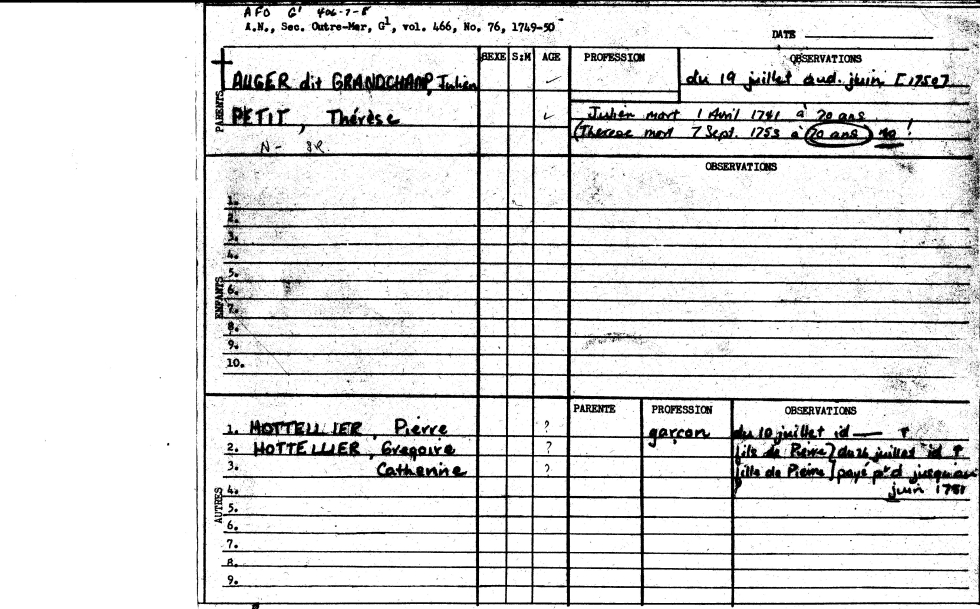 AFO G¹ 466-7-8
A.N., Sec. Outre-Mer, G¹, vol. 466, No. 76, 1749-50
DATE
SEXE S:M AGE PROFESSION OBSERVATIONS
PARENTS
AUGER dit GRANDCHAMP, Julien du 19 juillet aud. juin [1750]
PETIT, Thérèse Julien mort 1 Avril 1781 à 70 ans
(Therese mort 7 Sept. 1753 à 70 ans) 40 !
N-
OBSERVATIONS
ENFANTS
1.
2.
3.
4.
5.
6.
7.
8.
9.
10.
PARENTE PROFESSION OBSERVATIONS
AUTRES
1. HOTTELLIER, Pierre ? garçon du 10 juillet id —
2. HOTTELLIER, Gregoire ? [fils de Pierre] du 24 juillet id
3. Catherine ? [fille de Pierre] payé jusqu'au
4. juin 1751
5.
6.
7.
8.
9.